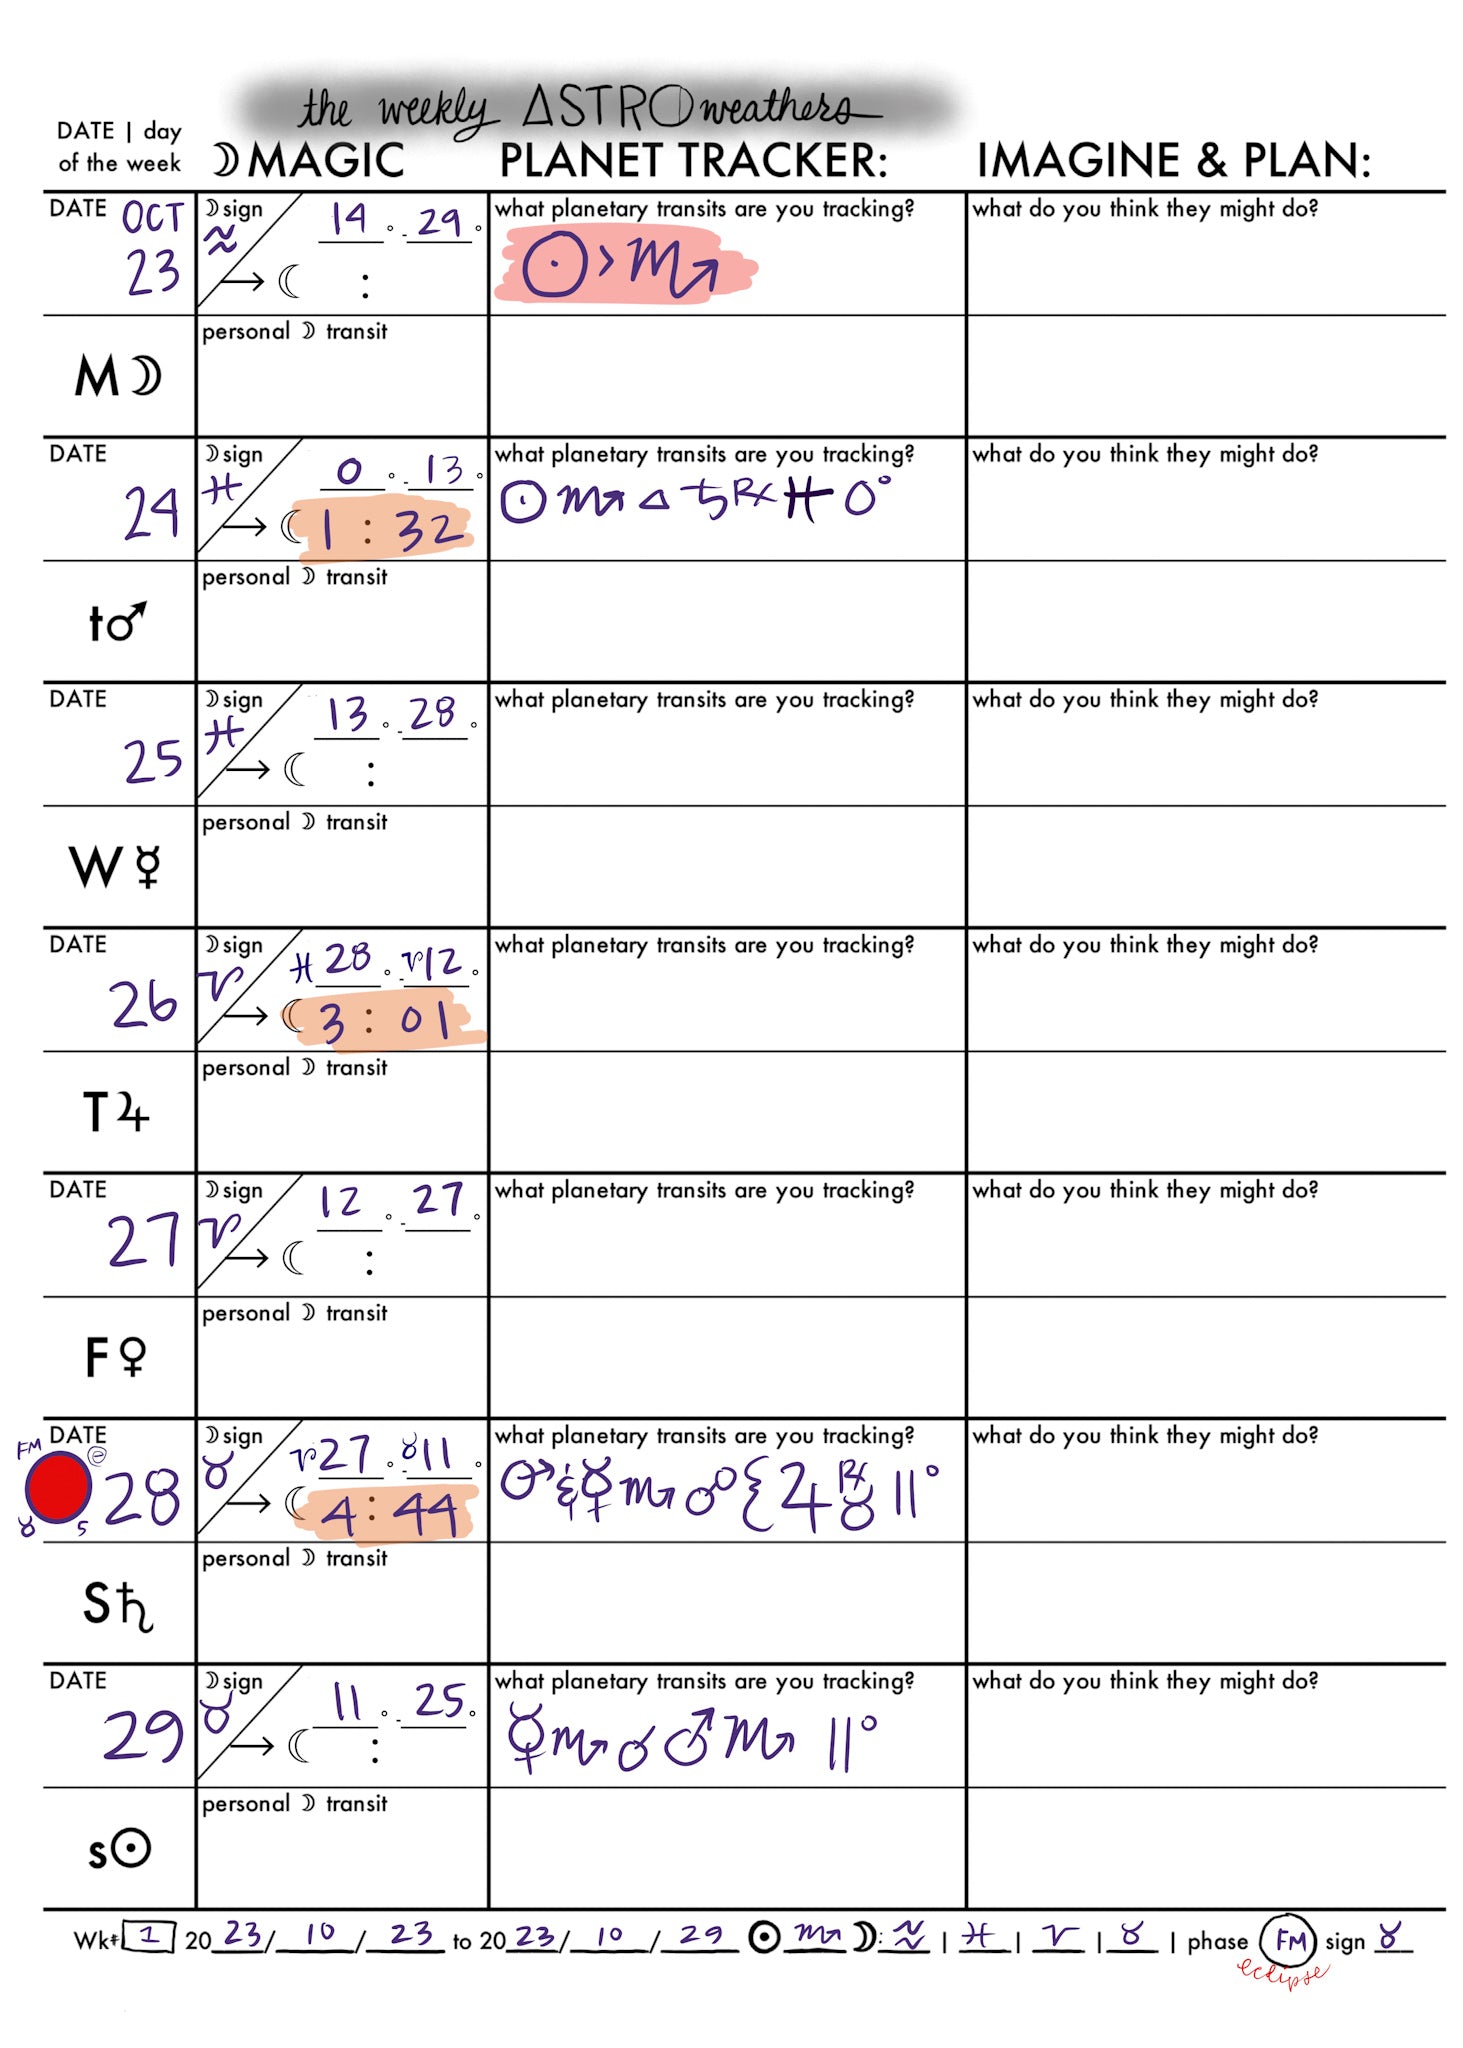 the weekly ASTROweathers
DATE | day
of the week
☽MAGIC
PLANET TRACKER:
IMAGINE & PLAN:
DATE OCT
23
☽sign
♒
14° - 29°
→ ☾ :
what planetary transits are you tracking?
☉>♏
what do you think they might do?
M☽
personal ☽ transit
DATE
24
☽sign
♓
0° - 13°
→ ☾ 1 : 32
what planetary transits are you tracking?
☉♏△♄℞♓0°
what do you think they might do?
t♂
personal ☽ transit
DATE
25
☽sign
♓
13° - 28°
→ ☾ :
what planetary transits are you tracking?
what do you think they might do?
W☿
personal ☽ transit
DATE
26
☽sign
♈
♓28° - ♈12°
→ ☾ 3 : 01
what planetary transits are you tracking?
what do you think they might do?
T♃
personal ☽ transit
DATE
27
☽sign
♈
12° - 27°
→ ☾ :
what planetary transits are you tracking?
what do you think they might do?
F♀
personal ☽ transit
DATE
FM @
28
♉ 5
☽sign
♉
♈27° - ♉11°
→ ☾ 4 : 44
what planetary transits are you tracking?
♂&☿♏☍{♃℞♉11°
what do you think they might do?
S♄
personal ☽ transit
DATE
29
☽sign
♉
11° - 25°
→ ☾ :
what planetary transits are you tracking?
☿♏☌♂♏11°
what do you think they might do?
s☉
personal ☽ transit
Wk# 1 2023/10/23 to 2023/10/29 ☉ ♏ ☽: ♒ | ♓ | ♈ | ♉ | phase FM sign ♉
eclipse